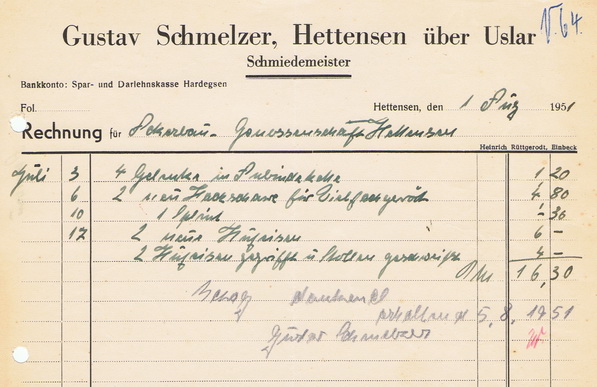 V. 64.
Gustav Schmelzer, Hettensen über Uslar
Schmiedemeister
Bankkonto: Spar- und Darlehnskasse Hardegsen
Fol.
Hettensen, den 1 Aug 1951
Rechnung für Ackerbau-Genossenschaft Hettensen
Heinrich Rüttgerodt, Einbeck
Juli 3 4 Gelenke in 1 20
6 2 neue Hackschare für Vielfachgerät 4 80
10 1 Splint - 30
17 2 neue Hufeisen 6 -
2 Hufeisen gegrifft u Stollen geschärft 4 -
DM 16,30
Betrag dankend
erhalten d 5, 8, 1951
Gustav Schmelzer